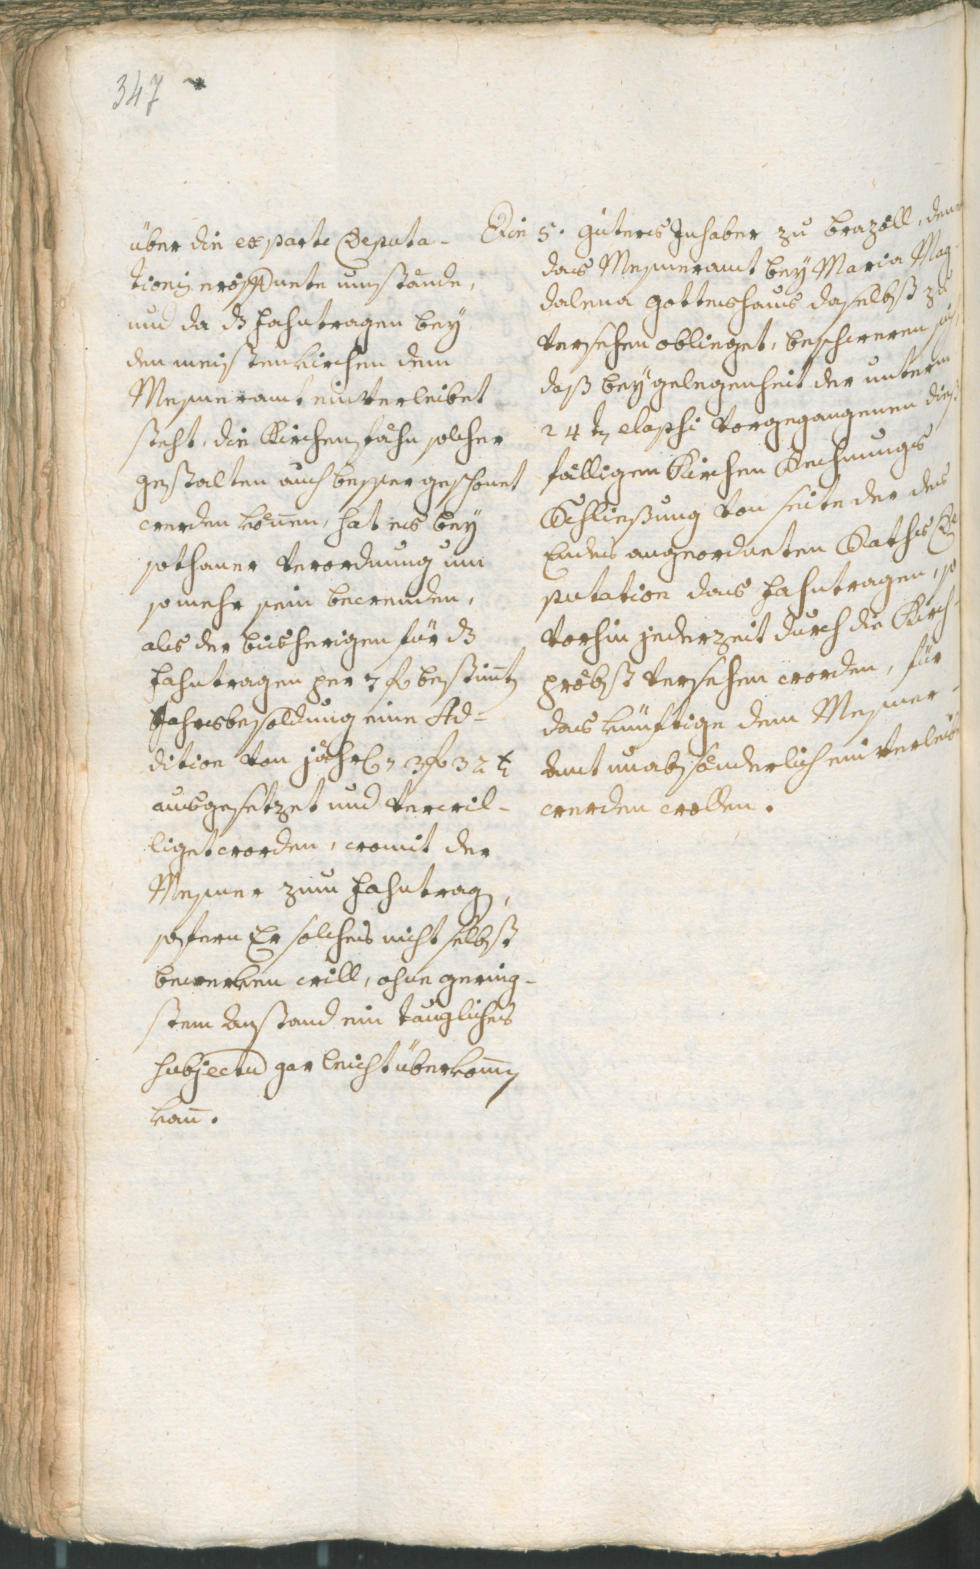 347
über die ex parte Deputa-
tionis eröffnete umstände,
und da dz fahntragen bey
den meisten kirchen dem
Mesmeramt einverleibet
steht, die Kirchenfahn solcher
gestalten auch besser geschonet
werden können, hat es bey
sothaner Verordnung um
so mehr sein bewenden,
als der bisherigen für dz
fahntragen per 7 fl bestimten
Jahrsbesoldung eine Ad-
dition von jährl. 3 fl 32 x
ausgesetzet und verwil-
liget worden, womit der
Mesmer zum fahntragen,
sofern Er solches nicht selbst
bewerken will, ohne gering-
stem anstand ein taugliches
subjectum gar leicht überkommen
kan.
Die 5. güters Inhaber zu brazöll, denen
das Mesmeramt bey Maria Mag-
dalena gotteshaus daselbst zu
versehen oblieget, beschweren sich
daß bey gelegenheit der unterm
24ten elapsi vorgegangenen dies
fälligen Kirchen Rechnungs
Schließung von seite der des
Endes angeordneten Raths De
putation das fahntragen, so
vorhin jederzeit durch die Kirch-
pröbst versehen worden, für
das künftige dem Mesmer-
amt unabsönderlich einverleibt
werden wollen.